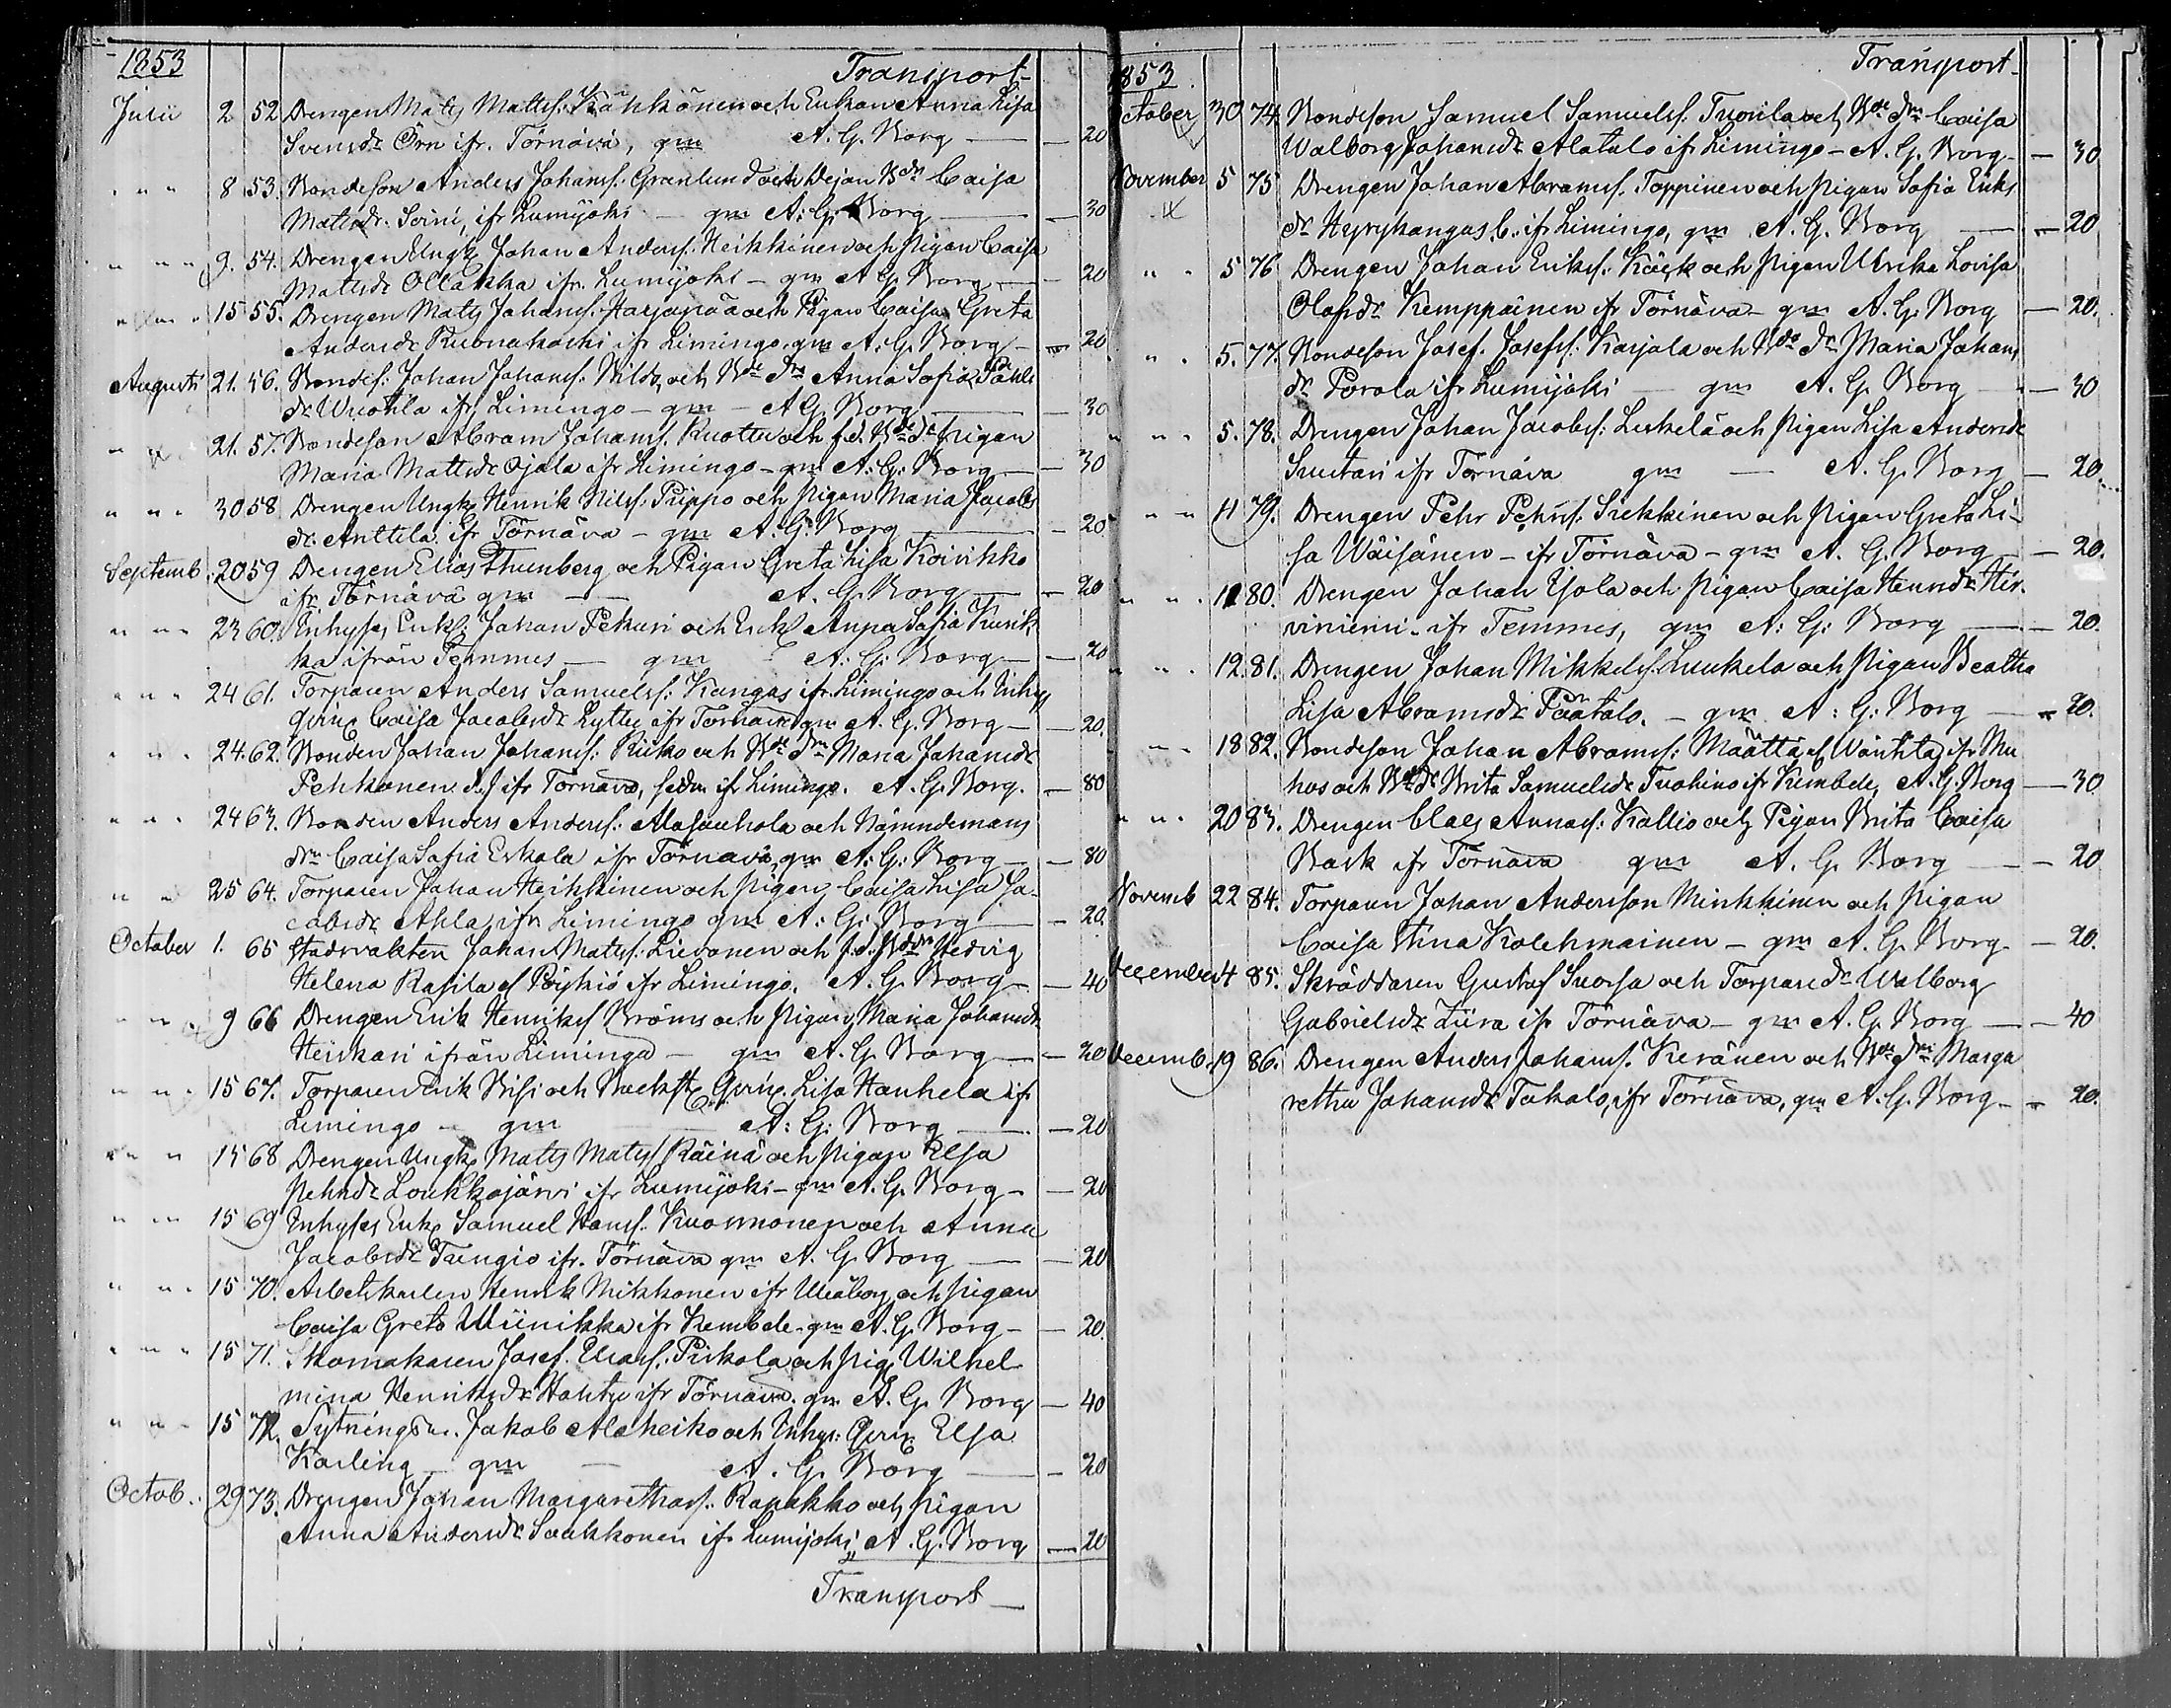 1853
Transport
Julii 2 52 Drengen Matts Mattss: Kähkönen och Enkan Anna Lisa
Svensdr Örn ifr. Törnävä, gm A. G. Borg — 20
" " 8 53. Bondeson Anders Johanss. Granlund och Bdr Caisa
Mattsdr. Soini, ifr Lumijoki — gm A: G: Borg — 30
" " 9. 54. Drengen Ungk Johan Anderss. Heikkinen och Pigan Caisa
Mattsdr Ollakka ifr. Lumijoki — gm A G. Borg — 20
" " 15 55. Drengen Matts Johanss. Harjapää och Pigan Caisa Greta
Andersdr Ruonakoski ifr Limingo. gm A. G. Borg — 20
Augusti 21. 56. Bondes: Johan Johanss. Nildo, och Bde Dr Anna Sofia Påhls
dr Wuotila ifr Limingo — gm — A G. Borg — 30
" " 21. 57. Bondeson Abram Johanss. Ruottu och f.d. Bdedr Pigan
Maria Mattsdr Ojala ifr Limingo — gm A: G: Borg — 30
" " 30 58 Drengen Ungk Henrik Nilss: Piippo och Pigan Maria Jacobs
dr. Anttila ifr Törnävä — gm A. G. Borg — 20
Septemb. 20 59 Drengen Elias Thunberg och Pigan Greta Lisa Koivikko
ifr. Törnävä gm — A. G. Borg — 20
" " 23 60. Inhyses Enkl: Johan Pekuri och Enk Anna Sofia Kurik
ka ifrån Temmes — gm A: G: Borg — 20
" " 24 61. Torparen Anders Samuelss: Kangas ifr. Limingo och Inhys
qvin Caisa Jacobsdr Lyttu ifr Törnävä gm A. G. Borg — 20.
" " 24. 62. Bonden Johan Johanss: Ruko och Bde Dr Maria Johansdr
Pehkonen ifr Törnävä, sedn ifr Limingo. A. G. Borg. — 80
" " 24 63. Bonden Anders Anderss: Alasauhola och Nämndemans
dr Caisa Sofia Eskola ifr Törnävä, gm A: G: Borg — 80
" " 25 64. Torparen Johan Heikkinen och Pigan Caisa Lisa Ja
cobsdr Ahla, ifr Limingo gm A: G: Borg — 20.
October 1. 65 Stadsvakten Johan Mattss: Lievonen och f.d. Bdr Hedvig
Helena Rasila el Pöyhiö ifr Limingo. A. G. Borg — 40
" " 9 66 Drengen Erik Henrikss Broms och Pigan Maria Johansdr
Heiskari ifrån Limingo — gm A. G. Borg — 20
" " 15 67. Torparen Erik Kisi och Backst Qvin. Lisa Hanhela ifr
Limingo — gm A: G: Borg — 20
" " 15 68 Drengen Ungk Matts Matss Räinä och Pigan Elsa
Pehrsdr Loukkojärvi ifr Lumijoki — gm A. G. Borg — 20
" " 15 69 Inhyses Enk Samuel Hanss. Kuosmonen och Anna
Jacobsdr Tungio ifr. Törnävä gm A. G. Borg — 20
" " 15 70. Arbetskarlen Henrik Mikkonen ifr Uleåborg och Pigan
Caisa Greta Miinikka ifr Kembele. gm A. G. Borg — 20.
" " 15 71. Skomakaren Josef Eliass. Pirkola och Pig Wilhel
mina Henriksdr Hahtu ifr Törnävä. gm A. G. Borg — 40
" " 15 72. Sytningsm. Jakob Alaheiko och Inhys: Qvin. Elsa
Karling — gm — A. G. Borg — 20
Octob. 29 73. Drengen Johan Margarethass. Rapakko och Pigan
Anna Andersdr Saukkonen ifr Lumijoki, A. G. Borg — 20
Transport —
1853
Transport
October 30 74 Bondeson Samuel Samuelss. Tuorila och Bde Dr Caisa
Walborg Johansdr Alatalo ifr Limingo — A. G. Borg — 30
November 5 75 Drengen Johan Abramss. Toppinen och Pigan Sofia Eriks
dr Hyrykangas, ifr Limingo, gm A. G. Borg — 20
" " 5 76 Drengen Johan Erikss. Käck och Pigan Ulrika Lovisa
Olofsdr Kemppainen ifr Törnävä — gm A. G. Borg — 20.
" " 5. 77. Bondeson Josef Josefss: Karjala och Bde Dr Maria Johans
dr Porola ifr Lumijoki — gm A. G. Borg — 30
" " 5. 78. Drengen Johan Jacobss: Leskelä och Pigan Lisa Andersdr
Suutari ifr Törnävä gm — A. G. Borg — 20.
" " 11 79. Drengen Pehr Pehrss. Siekkinen och Pigan Greta Li
sa Wäisänen — ifr Törnävä — gm A. G. Borg — 20.
" " 12 80. Drengen Johan Ejola och Pigan Caisa Henrdr Hir
viniemi — ifr Temmes, gm A: G: Borg — 20.
" " 12. 81. Drengen Johan Mikkelss. Luukela och Pigan Beatha
Lisa Abramsdr Paatalo. — gm A: G: Borg — 20.
" " 18 82. Bondeson Johan Abramss: Määtta el Wänttila ifr Mu
hos och Bdedr Brita Samuelsdr Tuohino ifr Kembele, A. G. Borg — 30
" " 20 83. Drengen Claes Annass: Kallio och Pigan Brita Caisa
Bask ifr Törnävä gm A. G. Borg — 20
Novemb 22 84. Torparen Johan Andersson Minkkinen och Pigan
Caisa Stina Kolehmainen — gm A. G. Borg — 20.
December 4 85. Skräddaren Gustaf Suorsa och Torparedr Walborg
Gabrielsdr Liira ifr Törnävä — gm A. G. Borg — 40
Decemb. 19 86. Drengen Anders Johanss. Keränen och Bde Dr Marga
retha Johansdr Takalo, ifr Törnävä, gm A. G. Borg — 20.